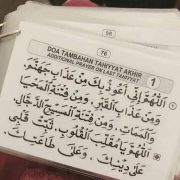 76
DOA TAMBAHAN TAHIYYAT AKHIR
ADDITIONAL PRAYER ON LAST TAHIYYAT
1
اَللّٰهُمَّ إِنِّيْ أَعُوْذُ بِكَ مِنْ عَذَابِ جَهَنَّمَ،
وَمِنْ عَذَابِ الْقَبْرِ، وَمِنْ فِتْنَةِ الْمَحْيَا
وَالْمَمَاتِ، وَمِنْ فِتْنَةِ الْمَسِيْحِ الدَّجَّالِ.
اَللّٰهُمَّ يَا مُقَلِّبَ الْقُلُوْبِ، ثَبِّتْ قَلْبِيْ
عَلَى دِيْنِكَ، وَعَلَى طَاعَتِكَ